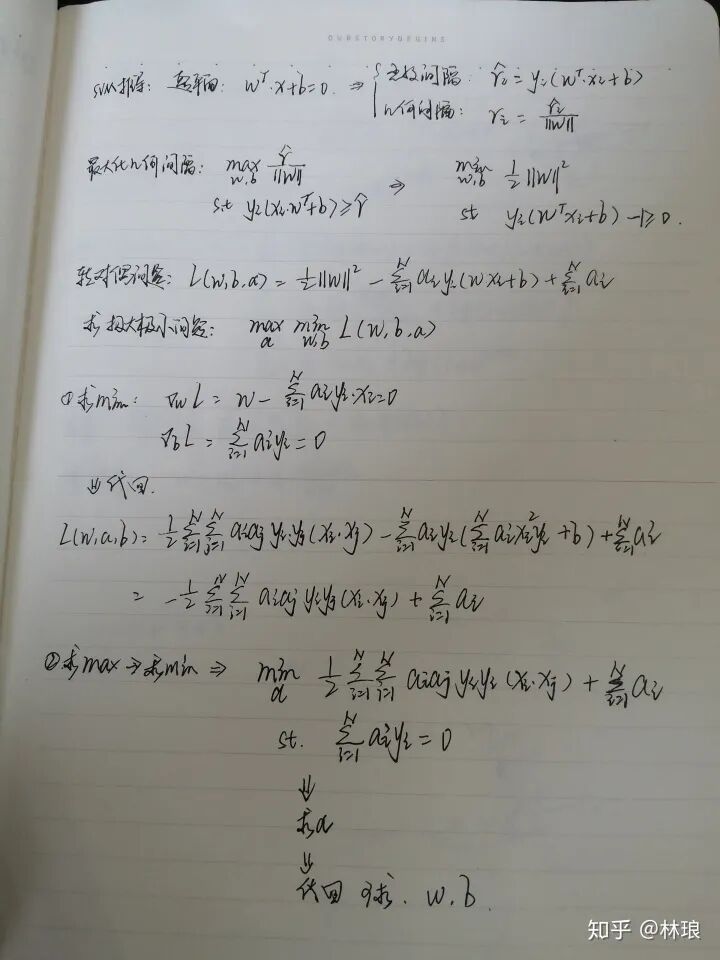 OURSTORYBEGINS
SVM推导: 超平面: wᵀ·x+b=0. ⇒ { 函数间隔: r̂ᵢ = yᵢ(wᵀ·xᵢ+b)
几何间隔: rᵢ = r̂ᵢ/||w||
最大化几何间隔: max_{w,b} r̂/||w|| ⇒ min_{w,b} ½||w||²
s.t yᵢ(xᵢ·wᵀ+b) ≥ r̂ st yᵢ(wᵀxᵢ+b) -1≥0.
转对偶问题: L(w,b,a) = ½||w||² - Σᵢ₌₁ᴺ aᵢyᵢ(wxᵢ+b) + Σᵢ₌₁ᴺ aᵢ
求极大极小问题: max_a min_{w,b} L(w,b,a)
①求min: ∇wL = w - Σᵢ₌₁ᴺ aᵢyᵢ·xᵢ=0
∇bL = Σᵢ₌₁ᴺ aᵢyᵢ = 0
⇓代回.
L(w,a,b) = ½ Σᵢ₌₁ᴺ Σⱼ₌₁ᴺ aᵢaⱼ yᵢyⱼ(xᵢ·xⱼ) - Σᵢ₌₁ᴺ aᵢyᵢ(Σᵢ₌₁ᴺ aᵢxᵢ²yᵢ +b) + Σᵢ₌₁ᴺ aᵢ
= -½ Σᵢ₌₁ᴺ Σᵢ₌₁ᴺ aᵢaⱼ yᵢyⱼ(xᵢ·xⱼ) + Σᵢ₌₁ᴺ aᵢ
②求max→求min ⇒ min_a ½ Σᵢ₌₁ᴺ Σⱼ₌₁ᴺ aᵢaⱼ yᵢyᵢ(xᵢ·xⱼ) + Σᵢ₌₁ᴺ aᵢ
st. Σᵢ₌₁ᴺ aᵢyᵢ = 0
⇓
求a
⇓
代回 可求. w.b.
知乎 @林琅